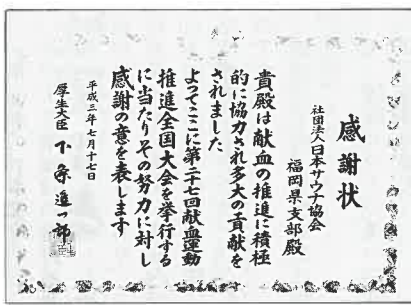 感謝状
社団法人日本サウナ協会
福岡県支部殿
貴殿は献血の推進に積極
的に協力され多大の貢献を
されました
よってここに第二十七回献血運動
推進全国大会を挙行する
に当たりその努力に対し
感謝の意を表します
平成三年七月十七日
厚生大臣 下条進一郎